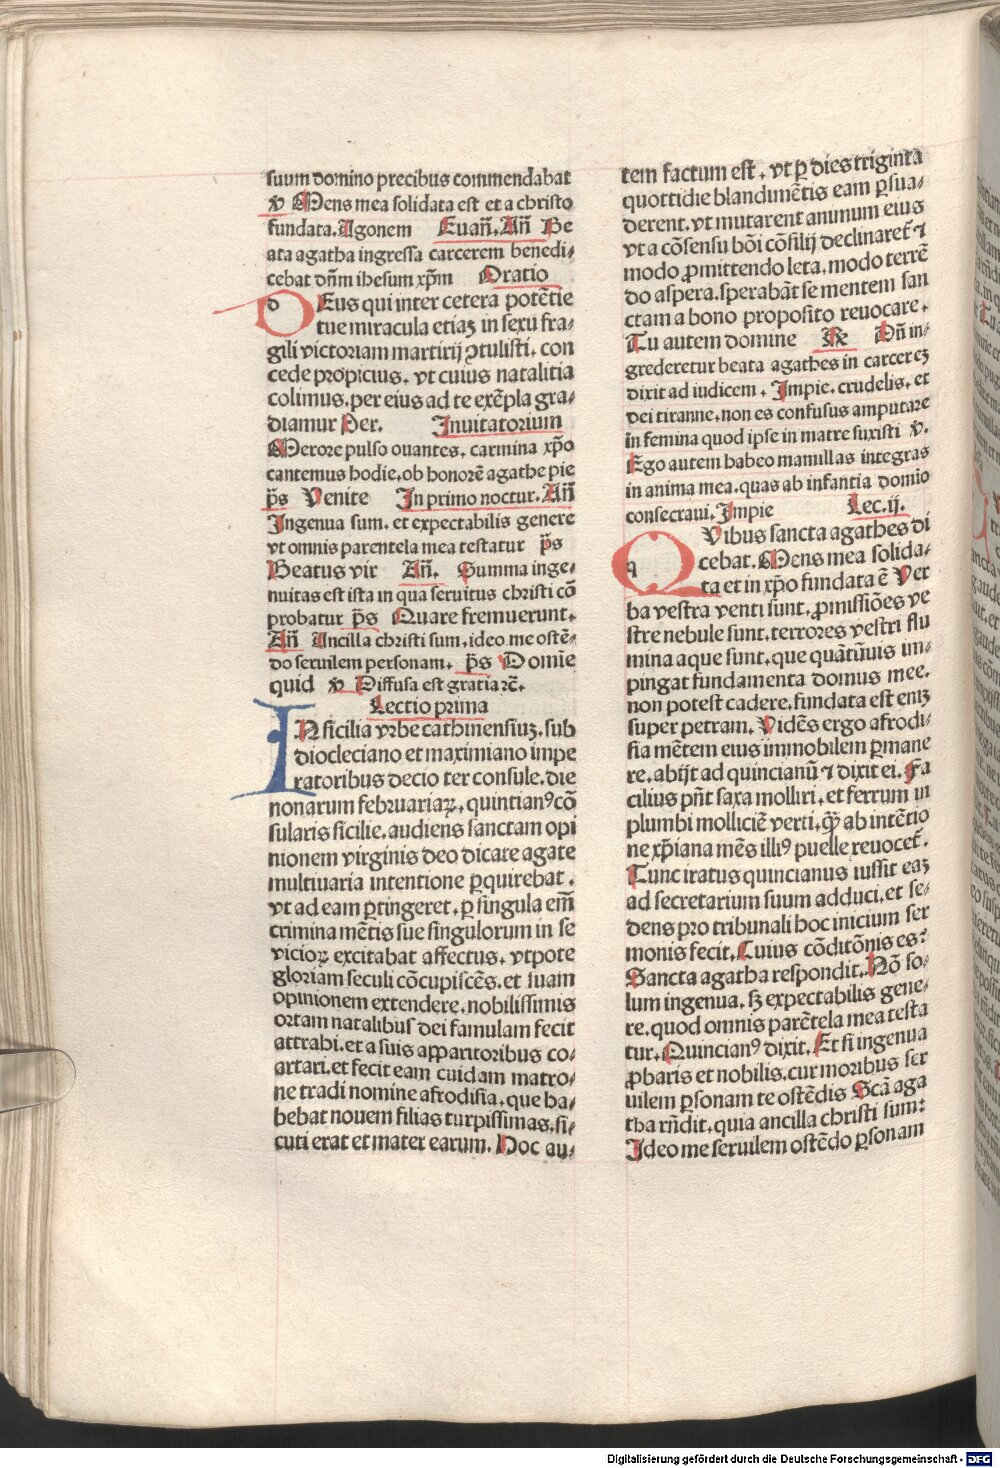 suum domino precibus commendabat
℣ Mens mea solidata est et a christo
fundata. Agonem Euañ. Añ Be
ata agatha ingressa carcerem benedi⸗
cebat dñm ihesum xp̄m Oratio
d Eus qui inter cetera potētie
tue miracula etiaꝫ in sexu fra⸗
gili victoriam martirij ꝯtulisti. con
cede propicius. vt cuius natalitia
colimus. per eius ad te exēpla gra⸗
diamur Per. Inuitatorium
Merore pulso ouantes. carmina xp̄o
cantemus hodie. ob honorē agathe pie
p̄s Venite In primo noctur. Añ
Ingenua sum. et expectabilis genere
vt omnis parentela mea testatur p̄s
Beatus vir Añ. Summa inge⸗
nuitas est ista in qua seruitus christi cō
probatur p̄s Quare fremuerunt.
Añ Ancilla christi sum. ideo me ostē⸗
do seruilem personam. p̄s Domīe
quid ℣ Diffusa est gratia ꝛc̄.
Lectio prima
IN sicilia vrbe cathinensiuꝫ. sub
diocleciano et maximiano impe
ratoribus decio ter consule. die
nonarum februariaꝝ. quintianꝰ cō
sularis sicilie. audiens sanctam opi
nionem virginis deo dicare agate
multiuaria intentione ꝑquirebat.
vt ad eam ꝑtingeret. ꝑ singula em̄
crimina mētis sue singulorum in se
vicioꝝ excitabat affectus. vtpote
gloriam seculi cōcupiscēs. et suam
opinionem extendere. nobilissimis
ortam natalibus dei famulam fecit
attrahi. et a suis apparitoribus co⸗
artari. et fecit eam cuidam matro⸗
ne tradi nomine afrodisia. que ha⸗
bebat nouem filias turpissimas. si⸗
cuti erat et mater earum. Hoc au⸗
tem factum est. vt ꝑ dies triginta
quottidie blandimētis eam ꝑsua⸗
derent. vt mutarent animum eius
vt a cōsensu bōi cōsilij declinaret ⁊
modo ꝓmittendo leta. modo terrē
do aspera. sperabāt se mentem san
ctam a bono proposito reuocare.
Tu autem domine ℟ Dñ in⸗
grederetur beata agathes in carcereꝫ
dixit ad iudicem. Impie. crudelis. et
dei tiranne. non es confusus amputare
in femina quod ipse in matre suxisti ℣.
Ego autem habeo mamillas integras
in anima mea. quas ab infantia domīo
consecraui. Impie Lec. ij.
q Vibus sancta agathes di
cebat. Mens mea solida⸗
ta et in xp̄o fundata ē Ver
ba vestra venti sunt. ꝓmissiōes ve
stre nebule sunt. terrores vestri flu
mina aque sunt. que quātūuis im⸗
pingat fundamenta domus mee.
non potest cadere. fundata est eniꝫ
super petram. Vidēs ergo afrodi⸗
sia mētem eius immobilem ꝑmane
re. abijt ad quincianū ⁊ dixit ei. Fa
cilius pn̄t saxa molliri. et ferrum in
plumbi molliciē verti. ꝙ̄ ab intētio
ne xp̄iana mēs illiꝰ puelle reuocet.
Tunc iratus quincianus iussit eaꝫ
ad secretarium suum adduci. et se⸗
dens pro tribunali hoc inicium ser
monis fecit. Cuius cōditōnis es?
Sancta agatha respondit. Nō so⸗
lum ingenua. sꝫ expectabilis gene⸗
re. quod omnis parētela mea testa
tur. Quincianꝰ dixit. Et si ingenua
ꝓbaris et nobilis. cur moribus ser
uilem ꝑsonam te ostēdis Scā aga
tha rñdit. quia ancilla christi sum:
Ideo me seruilem ostēdo ꝑsonam
Digitalisierung gefördert durch die Deutsche Forschungsgemeinschaft - DFG